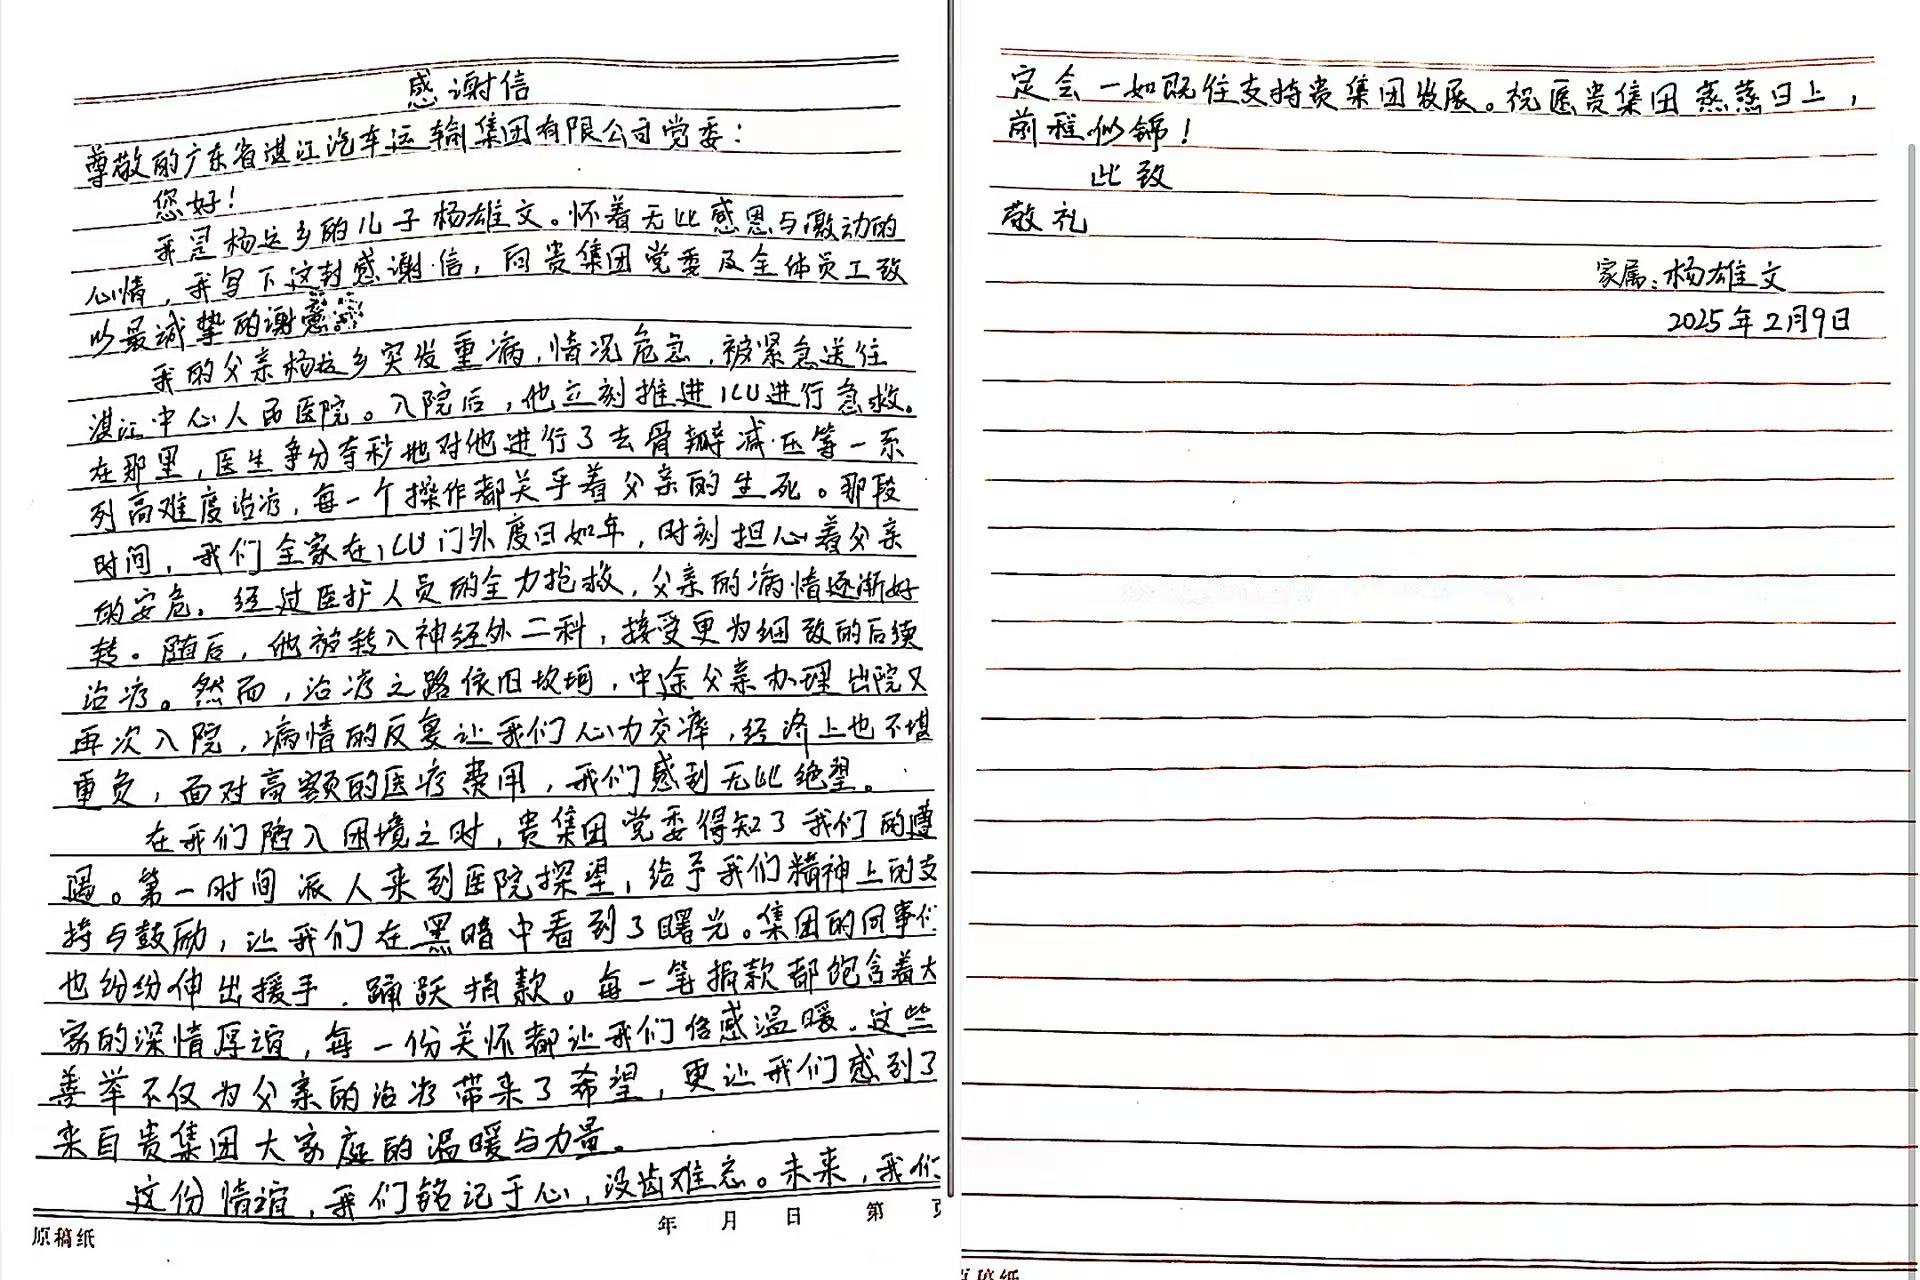 感谢信
尊敬的广东省湛江汽车运输集团有限公司党委：
您好！
我是杨乡的儿子杨雄文。怀着无比感恩与激动的
心情，我写下这封感谢信，向贵集团党委及全体员工致
以最诚挚的谢意。
我的父亲杨乡突发重病，情况危急，被紧急送往
湛江中心人民医院。入院后，他立刻推进ICU进行急救。
在那里，医生争分夺秒地对他进行了去骨瓣减压等一系
列高难度治疗，每一个操作都关乎着父亲的生死。那段
时间，我们全家在ICU门外度日如年，时刻担心着父亲
的安危。经过医护人员的全力抢救，父亲的病情逐渐好
转。随后，他被转入神经外二科，接受更为细致的后续
治疗。然而，治疗之路依旧坎坷，中途父亲办理出院又
再次入院，病情的反复让我们心力交瘁，经济上也不堪
重负，面对高额的医疗费用，我们感到无比绝望。
在我们陷入困境之时，贵集团党委得知了我们的遭
遇。第一时间派人来到医院探望，给予我们精神上的支
持与鼓励，让我们在黑暗中看到了曙光。集团的同事们
也纷纷伸出援手，踊跃捐款。每一笔捐款都饱含着大
家的深情厚谊，每一份关怀都让我们倍感温暖。这些
善举不仅为父亲的治疗带来了希望，更让我们感到了
来自贵集团大家庭的温暖与力量。
这份情谊，我们铭记于心，没齿难忘。未来，我们
年 月 日 第 页
原稿纸
定会一如既往支持贵集团发展。祝愿贵集团蒸蒸日上，
前程似锦！
此致
敬礼
家属：杨雄文
2025年2月9日
原稿纸